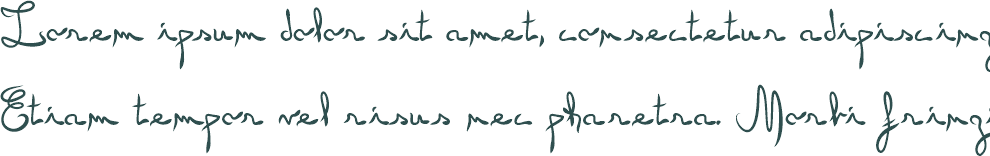 Lorem ipsum dolor sit amet, consectetur adipiscing
Etiam tempor vel risus nec pharetra. Morbi fringi